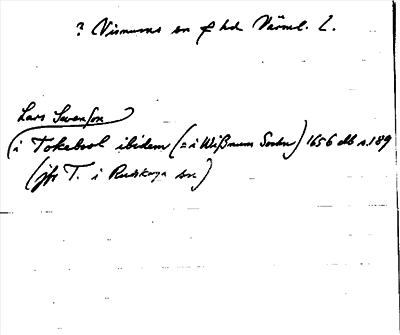 ? Visnums sn f hd Värml. L.
Lars Swenson
(i Tokebool ibidem (= i Wißnum Sochn) 1656 db s. 189
(jfr T. i Rudskoga sn.)